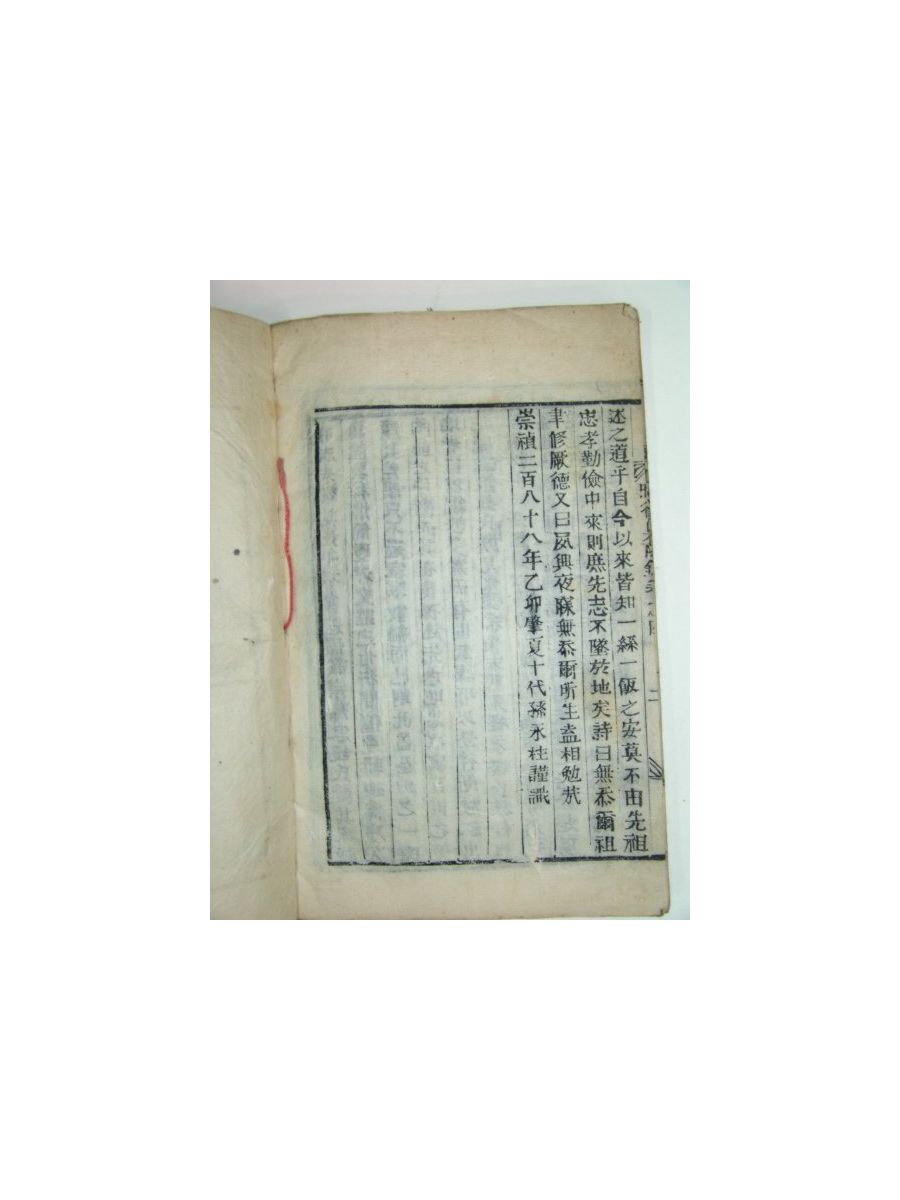 述之道乎自今以來皆知一絲一飯之安莫不由先祖
忠孝勤儉中來則庶先志不墜於地矣詩曰無忝爾祖
聿修厥德又曰夙興夜寐無忝爾所生盍相勉㢤
崇禎二百八十八年乙卯肇夏十代孫永柱謹識